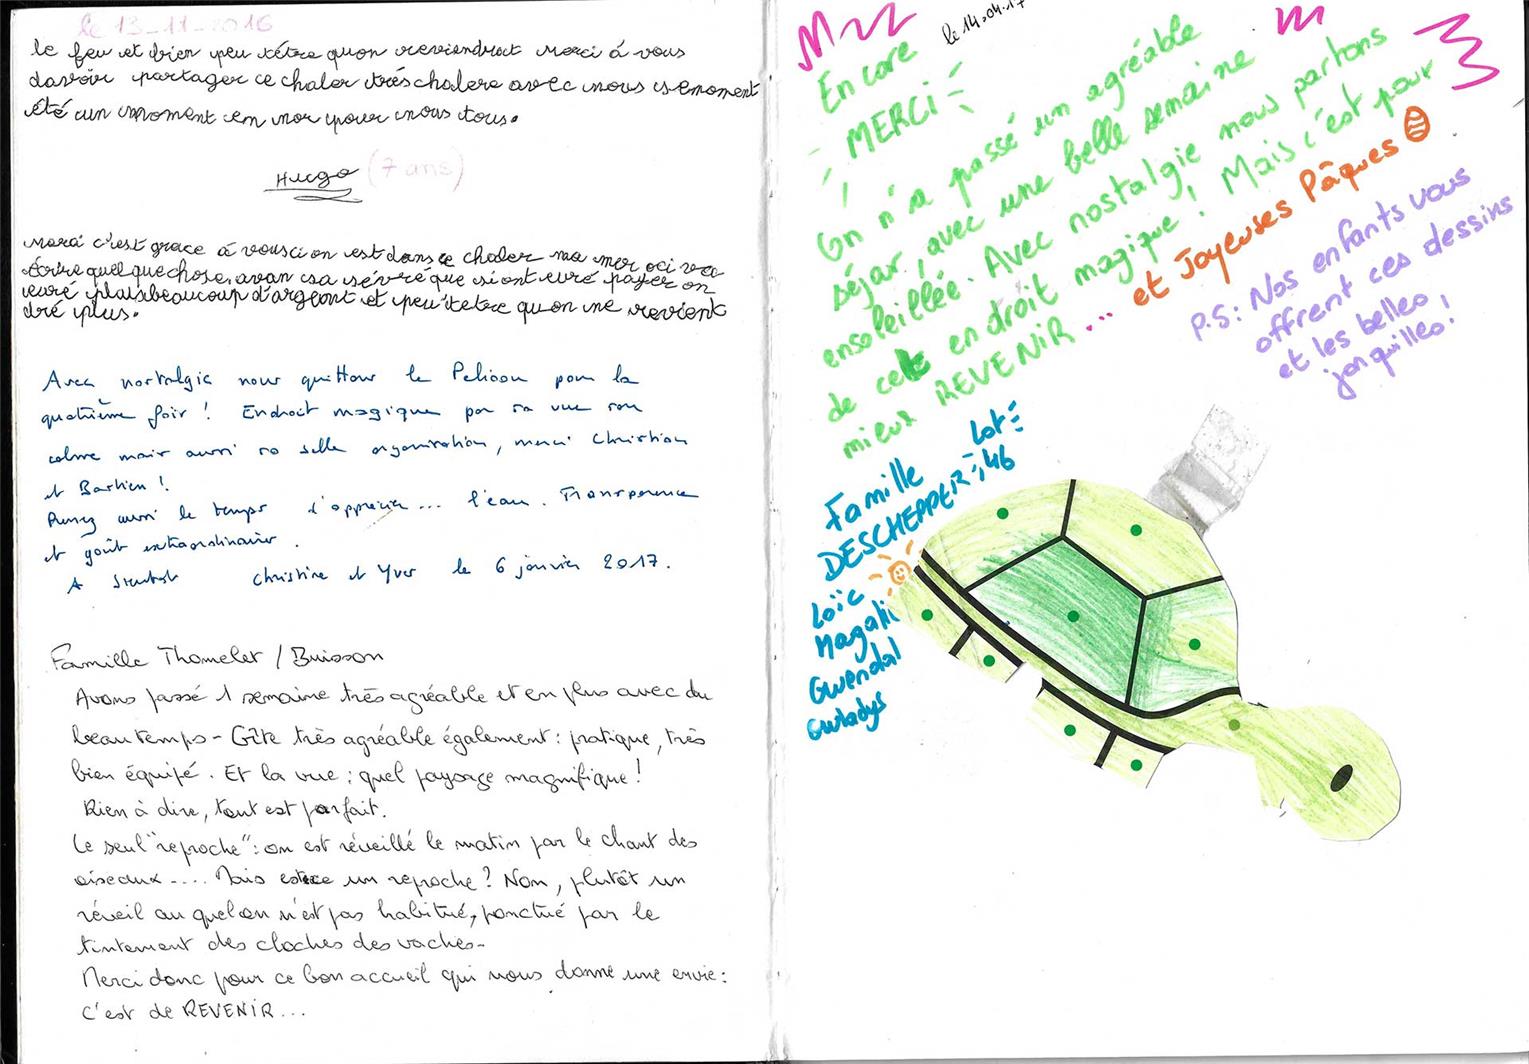 le 13-11-2016
le feu et bien peu têtre quon reviendrat merci á vous
davoir partager ce chaler très chalere avec nous ce moment
été un moment en nor pour nous tous.
Hugo (7 ans)
merci c'est grace á vous ci on est dans ce chaler ma mer oci va
écrire quelquechose. avan csa sévré que si ont euré payer on
euré plus beaucoup d'argent et peu têtre qu on ne revient
dré plus.
Avec nostalgie nous quittons le Pelisson pour la
quatrième fois ! Endroit magique par sa vue son
calme mais aussi sa belle organisation, merci Christian
et Bastien !
Prenez aussi le temps d'apprécier ... l'eau. Transparence
et goût extraordinaire.
A bientôt Christine et Yves le 6 janvier 2017.
Famille Thomelet / Buisson
Avons passé 1 semaine très agréable et en plus avec du
beau temps - Gîte très agréable également : pratique, très
bien équipé. Et la vue : quel paysage magnifique !
Rien à dire, tout est parfait.
Le seul "reproche" : on est réveillé le matin par le chant des
oiseaux .... Mais estce un reproche ? Non, plutôt un
réveil au quel on n'est pas habitué, ponctué par le
tintement des cloches des vaches -
Merci donc pour ce bon accueil qui nous donne une envie :
c'est de REVENIR ...
le 14.04.17
Encore
MERCI
On n'a passé un agréable
séjar, avec une belle semaine
ensoleillée. Avec nostalgie nous partons
de cet endroit magique ! Mais c'est pour
mieux REVENIR ... et Joyeuses Pâques
P.S : Nos enfants vous
offrent ces dessins
et les belles
jonquilles !
Famille
DESCHEPPER
Lot
46
Loïc
Magali
Gwendal
Gwladys